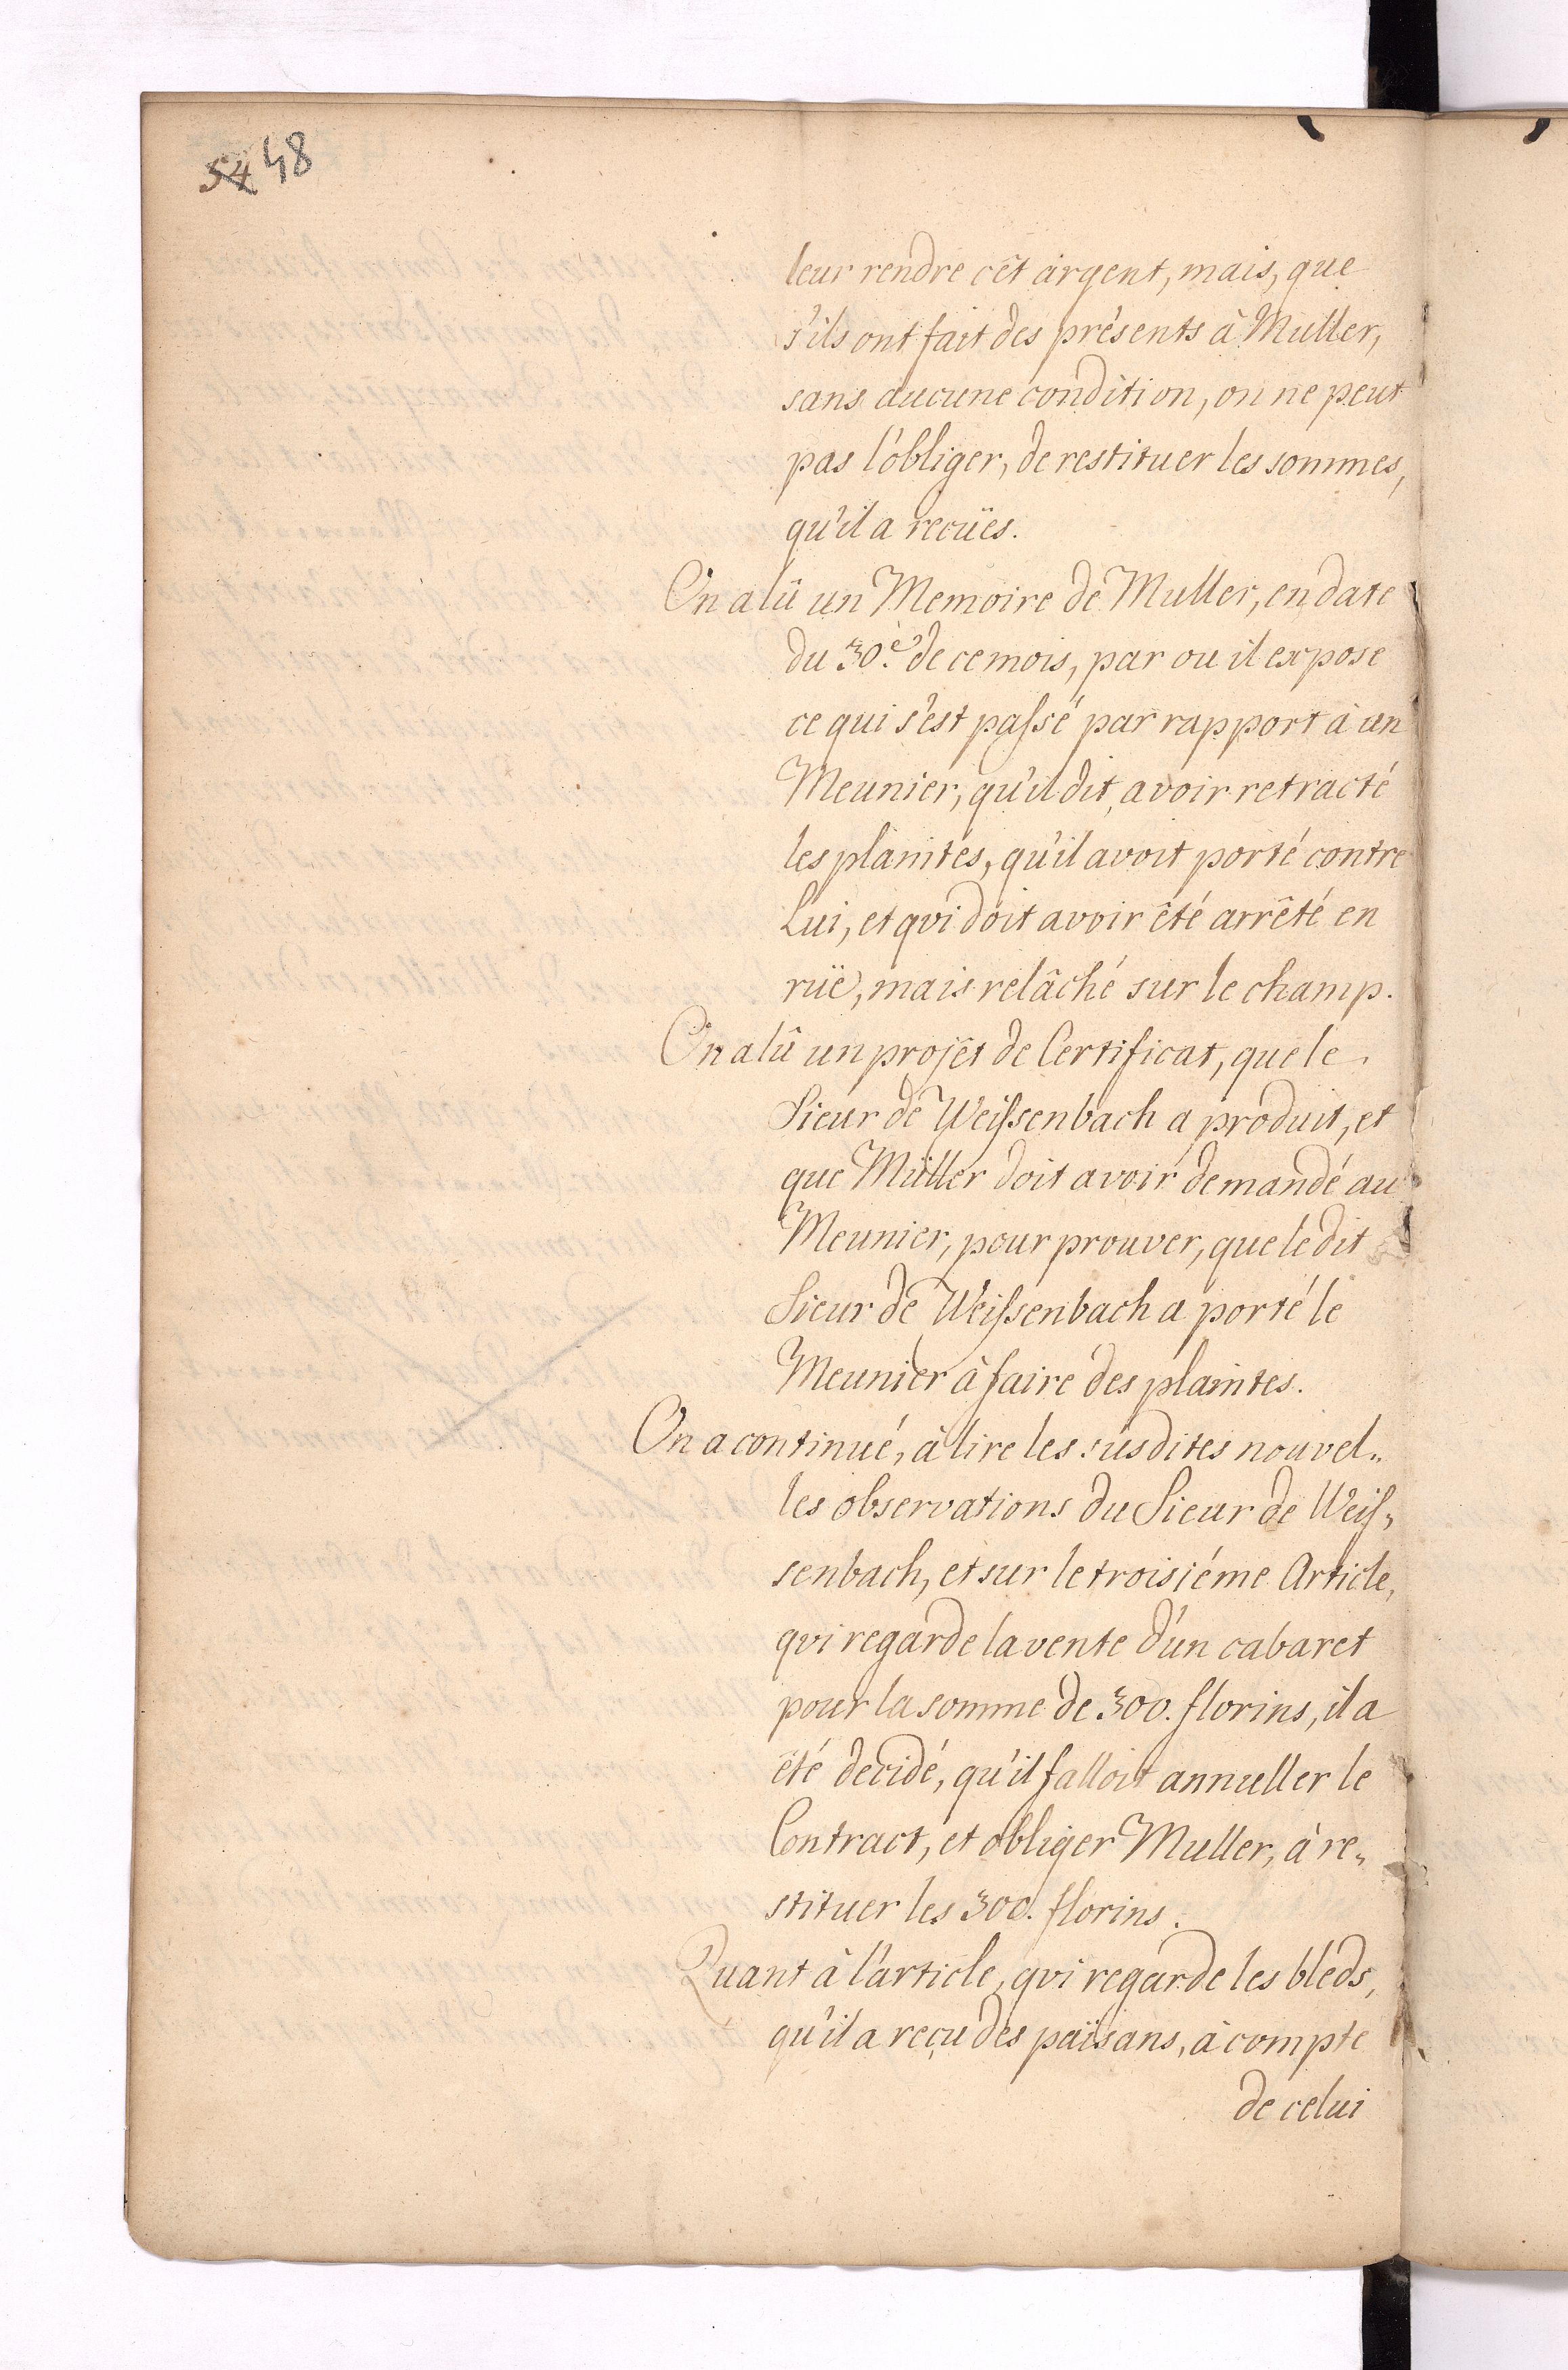 54 48
leur rendre cêt argent, mais, que
s'ils ont fait des présents à Muller,
sans aucune condition, on ne peut
pas l'obliger, de restituer les sommes,
qu'il a recües.
On a lû un Memoire de Muller, en date
du 30.e de ce mois, par ou il expose
ce qui s'est passé par rapport à un
Meunier, qu'il dit, avoir retracté
les plaintes, qu'il avoit porté contre
Lui, et qvi doit avoir êté arrêté en
rüe, mais relâché sur le champ.
On a lû un projêt de Certificat, que le
Sieur de Weissenbach a produit, et
que Müller doit avoir demandé au
Meunier, pour prouver, que le dit
Sieur de Weissenbach a porté le
Meunier à faire des plaintes.
On a continué, à lire les susdites nouvel„
les observations du Sieur de Weis„
senbach, et sur le troisiéme Article,
qvi regarde la vente d'un cabaret
pour la somme de 300. florins, il a
êté decidé, qu'il falloit annuller le
Contract, et obliger Muller, à re„
stituer les 300. florins.
Quant à l'article, qvi regarde les bleds,
qu'il a reçu des païsans, à compte
de celui